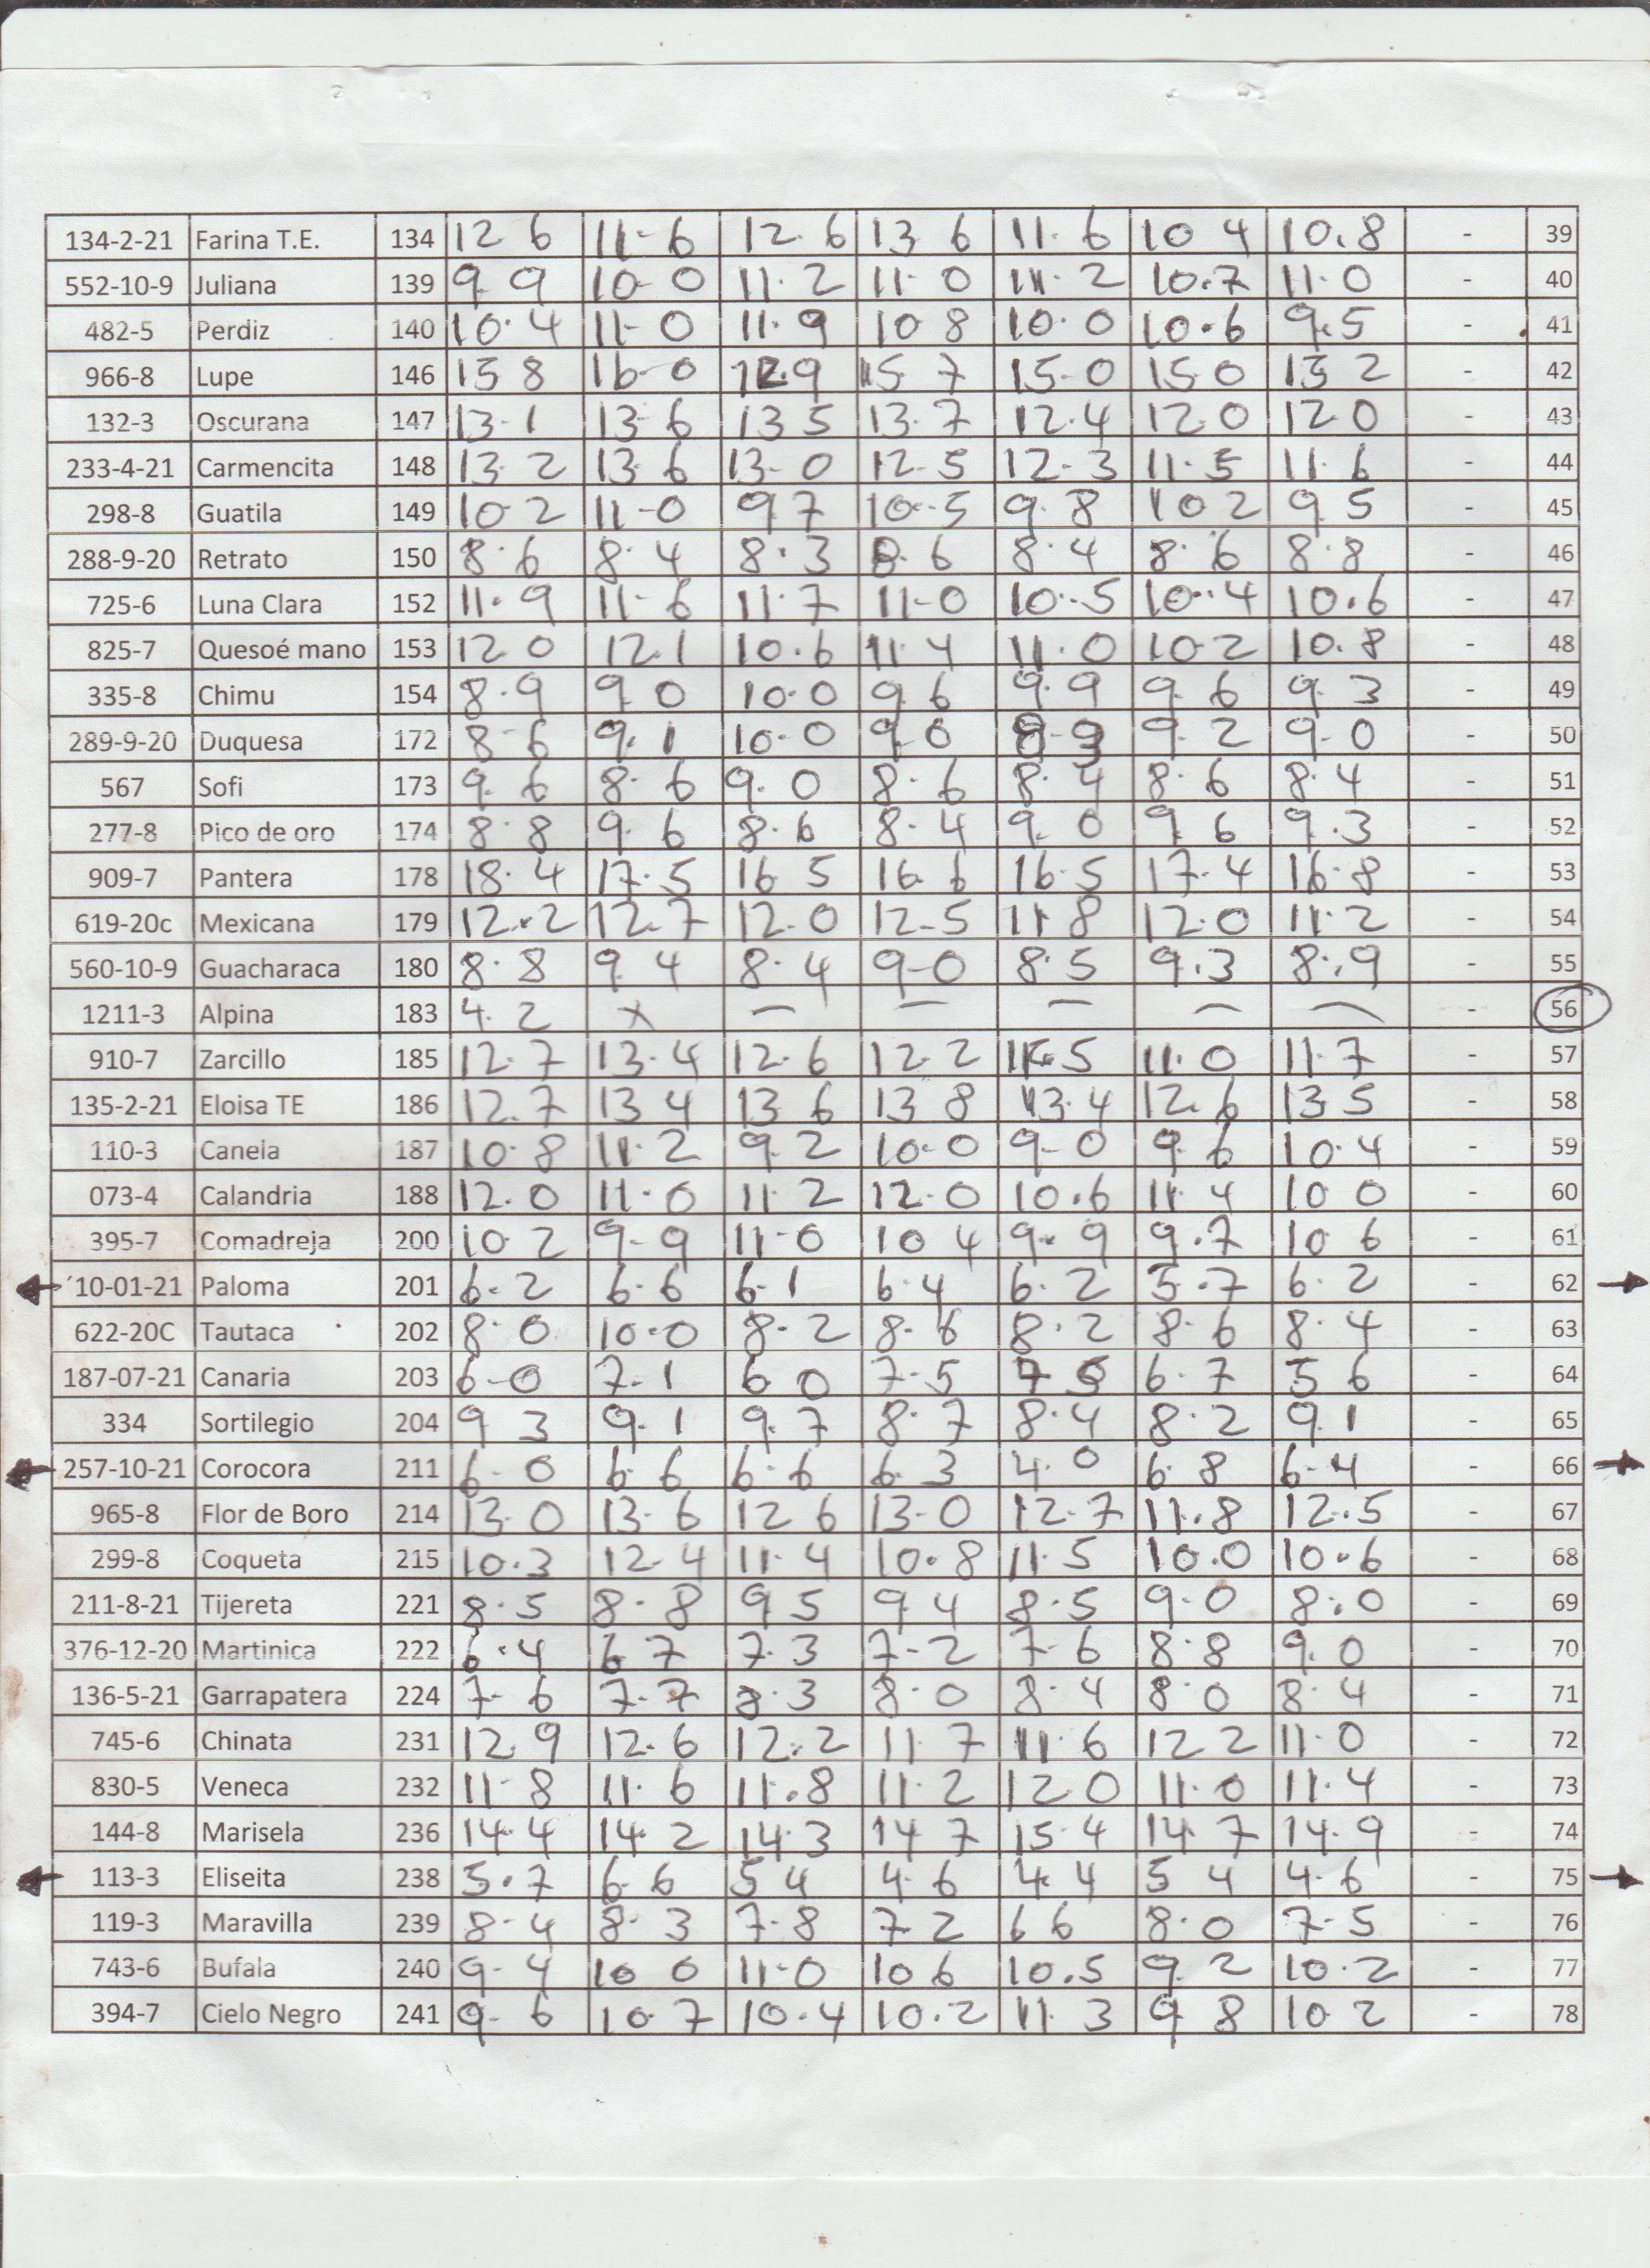 134-2-21 Farina T.E. 134 12 6 11-6 12.6 13 6 11.6 10 4 10.8 - 39
552-10-9 Juliana 139 9 9 10-0 11.2 11.0 11.2 10.7 11.0 - 40
482-5 Perdiz 140 10.4 11-0 11.9 10 8 10.0 10.6 9.5 - 41
966-8 Lupe 146 15 8 16-0 15 7 15-0 15 0 13 2 - 42
132-3 Oscurana 147 13-1 13-6 13 5 13-7 12.4 12.0 12 0 - 43
233-4-21 Carmencita 148 13.2 13.6 13-0 12-5 12-3 11.5 11.6 - 44
298-8 Guatila 149 10-2 11-0 9 7 10-5 9.8 10 2 9.5 - 45
288-9-20 Retrato 150 8.6 8.4 8.3 8.6 8.4 8.6 8.8 - 46
725-6 Luna Clara 152 11.9 11-6 11.7 11-0 10.5 10.4 10.6 - 47
825-7 Quesoé mano 153 12 0 12.1 10.6 11 4 11.0 10-2 10.8 - 48
335-8 Chimu 154 8.9 9.0 10.0 9 6 9.9 9.6 9.3 - 49
289-9-20 Duquesa 172 8.6 9.1 10.0 9.0 9.2 9.0 - 50
567 Sofi 173 9.6 8.6 9.0 8.6 8.4 8.6 8.4 - 51
277-8 Pico de oro 174 8.8 9.6 8.6 8.4 9.0 9.6 9.3 - 52
909-7 Pantera 178 18.4 17.5 16 5 16.6 16.5 17.4 16.8 - 53
619-20c Mexicana 179 12.2 12.7 12.0 12-5 11.8 12.0 11.2 - 54
560-10-9 Guacharaca 180 8.8 9 4 8.4 9-0 8.5 9.3 8.9 - 55
1211-3 Alpina 183 4.2 x - - - - - - 56
910-7 Zarcillo 185 12.7 13.4 12.6 12.2 11.5 11.0 11.7 - 57
135-2-21 Eloisa TE 186 12.7 13 4 13 6 13 8 13.4 12.6 13 5 - 58
110-3 Canela 187 10.8 11.2 9.2 10.0 9-0 9.6 10.4 - 59
073-4 Calandria 188 12.0 11.0 11 2 12.0 10.6 11.4 10 0 - 60
395-7 Comadreja 200 10.2 9-9 11-0 10 4 9.9 9.7 10 6 - 61
'10-01-21 Paloma 201 6.2 6.6 6-1 6.4 6.2 5.7 6.2 - 62
622-20C Tautaca 202 8.0 10.0 8.2 8.6 8.2 8.6 8.4 - 63
187-07-21 Canaria 203 6-0 7-1 6 0 7-5 7 5 6.7 5 6 - 64
334 Sortilegio 204 9 3 9.1 9.7 8.7 8.4 8.2 9 1 - 65
257-10-21 Corocora 211 6-0 6.6 6.6 6.3 4.0 6.8 6-4 - 66
965-8 Flor de Boro 214 13.0 13-6 12 6 13-0 12.7 11.8 12.5 - 67
299-8 Coqueta 215 10.3 12-4 11.4 10.8 11.5 10.0 10.6 - 68
211-8-21 Tijereta 221 8.5 8.8 9 5 9 4 8.5 9.0 8.0 - 69
376-12-20 Martinica 222 6.4 6 7 7.3 7-2 7-6 8.8 9.0 - 70
136-5-21 Garrapatera 224 7-6 7-7 8.3 8.0 8.4 8.0 8.4 - 71
745-6 Chinata 231 12.9 12.6 12.2 11.7 11.6 12 2 11.0 - 72
830-5 Veneca 232 11-8 11.6 11.8 11.2 12 0 11.0 11.4 - 73
144-8 Marisela 236 14.4 14.2 14.3 14 7 15.4 14.7 14.9 - 74
113-3 Eliseita 238 5.7 6.6 5 4 4.6 4.4 5 4 4.6 - 75
119-3 Maravilla 239 8.4 8.3 7-8 7.2 6 6 8.0 7-5 - 76
743-6 Bufala 240 9-4 10 0 11-0 10 6 10.5 9.2 10.2 - 77
394-7 Cielo Negro 241 9-6 10.7 10.4 10.2 11.3 9 8 10 2 - 78